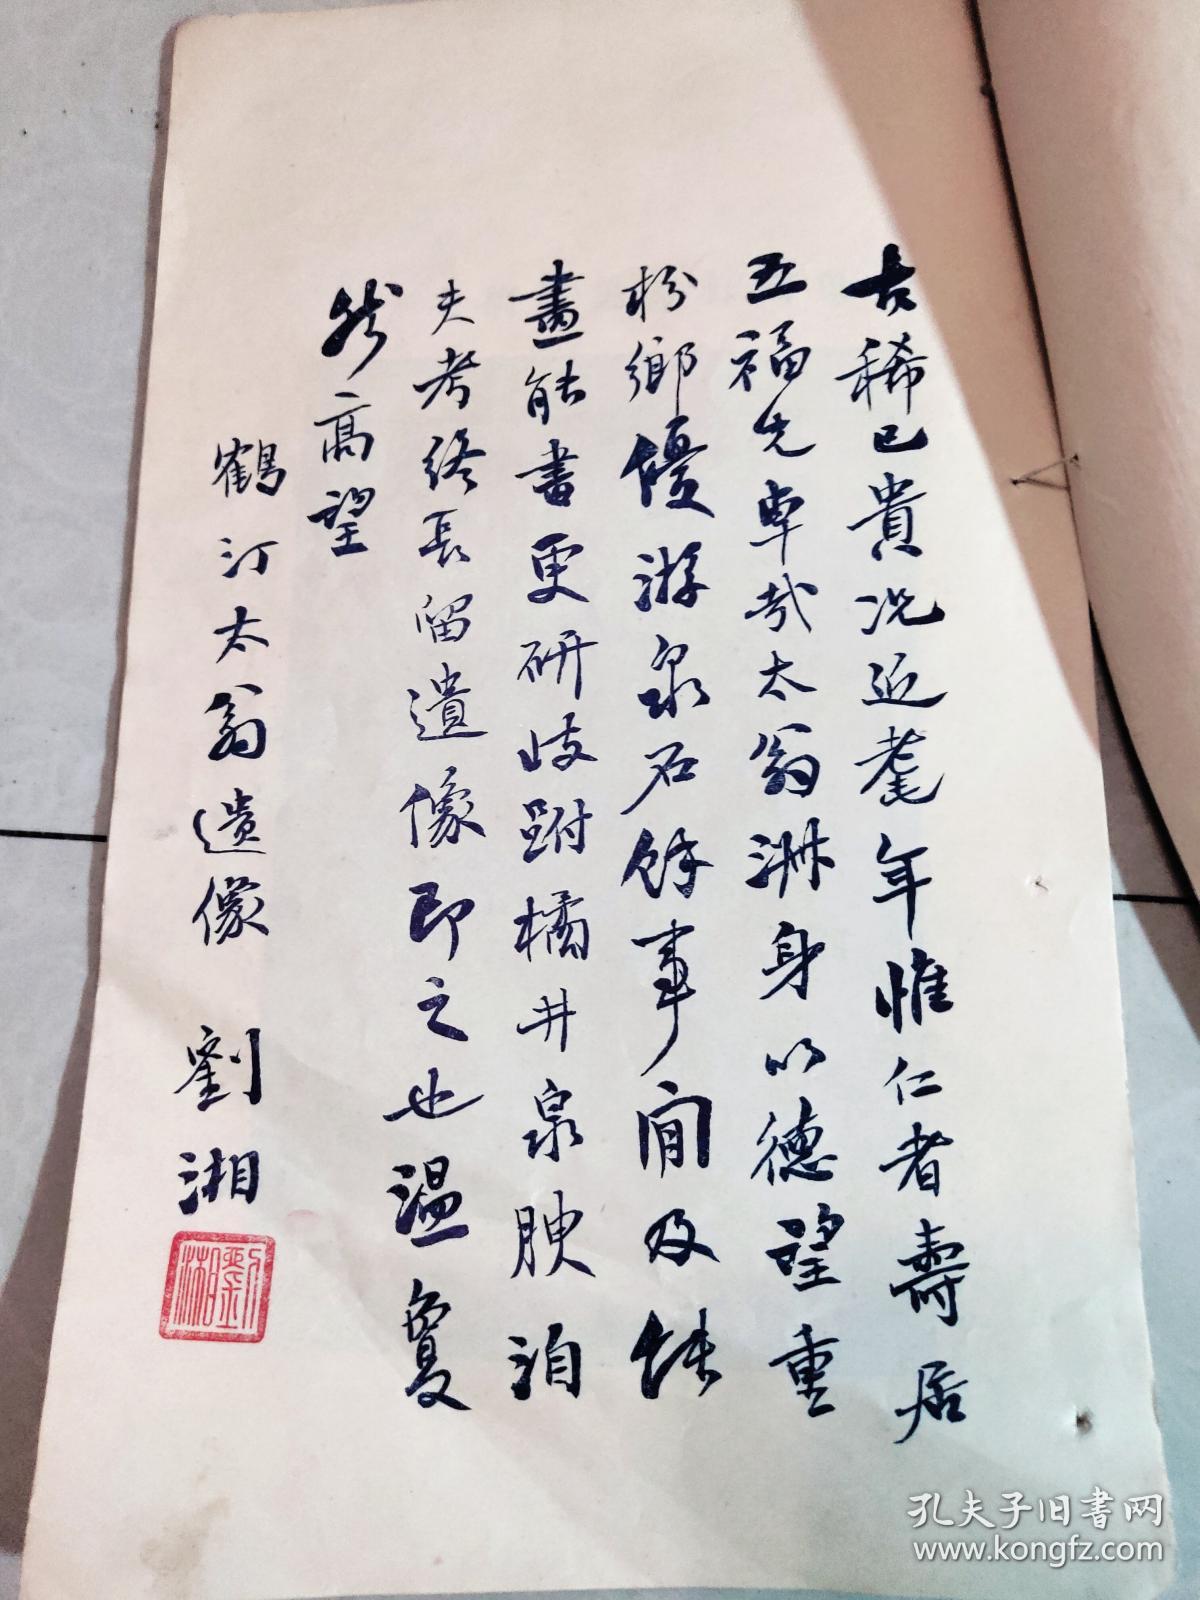 古稀已貴況近耄年惟仁者壽居
五福先卓哉太翁淋身以德望重
枌鄉優游泉石餘事間及能
畫能書更研岐跗橘井泉腴洎
夫考終長留遺像即之也溫敻
然高望
鶴汀太翁遺像 劉湘
劉湘
孔夫子旧书网
www.kongfz.com